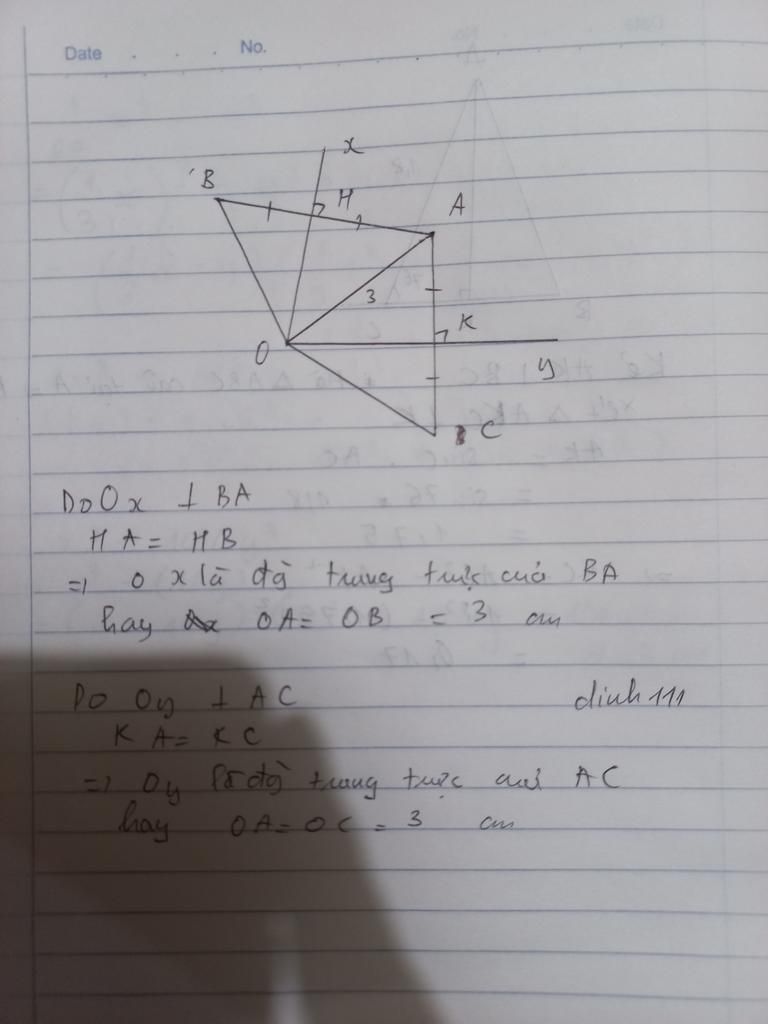 Date . . . No.
x
B
H
A
3
K
O
y
C
Do Ox ⊥ BA
HA = HB
=> Ox là đg trung trực của BA
hay OA = OB = 3 cm
Do Oy ⊥ AC
dinh 111
KA = KC
=> Oy là đg trung trực của AC
hay OA = OC = 3 cm